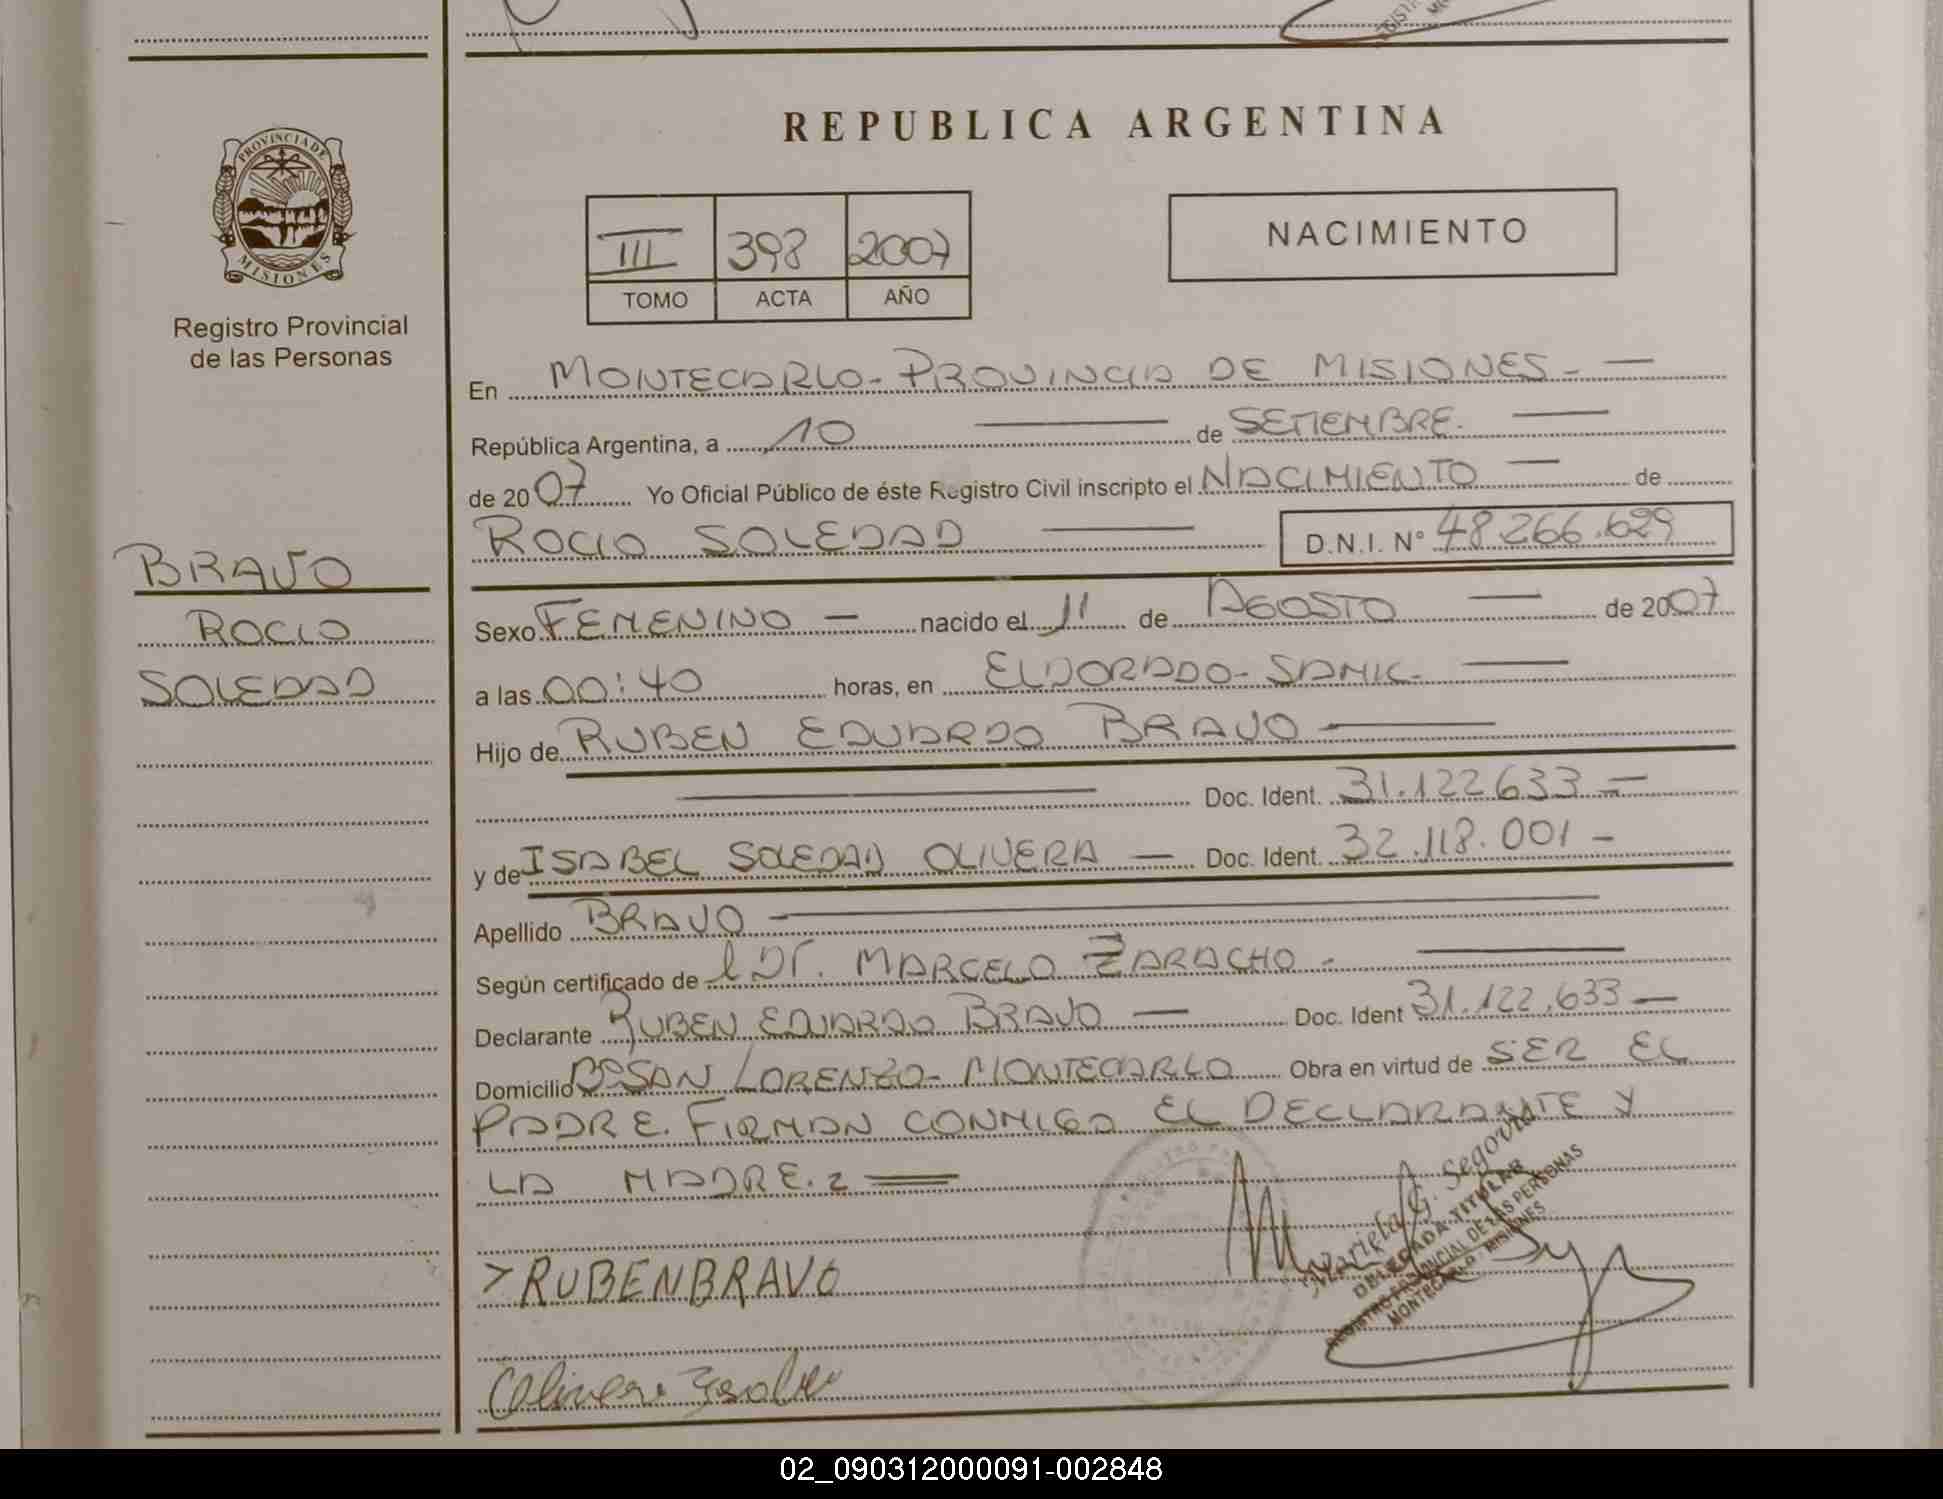 REPUBLICA ARGENTINA
PROVINCIA DE
MISIONES
Registro Provincial
de las Personas
III 398 2007
TOMO ACTA AÑO
NACIMIENTO
En MONTECARLO - PROVINCIA DE MISIONES -
República Argentina, a 10 de SETIEMBRE.
de 2007 Yo Oficial Público de éste Registro Civil inscripto el NACIMIENTO de
ROCIO SOLEDAD D.N.I. Nº 48.266.629
BRAVO
ROCIO
SOLEDAD
Sexo FEMENINO nacido el 11 de AGOSTO de 2007
a las 00:40 horas, en ELDORADO - SAMIC -
Hijo de RUBEN EDUARDO BRAVO
Doc. Ident. 31.122.633
y de ISABEL SOLEDAD OLIVERA Doc. Ident. 32.118.001
Apellido BRAVO
Según certificado de Dr. MARCELO ZARACHO -
Declarante RUBEN EDUARDO BRAVO Doc. Ident 31.122.633
Domicilio Bº SAN LORENZO - MONTECARLO Obra en virtud de SER EL
PADRE. FIRMAN CONMIGO EL DECLARANTE Y
LA MADRE.
RUBEN BRAVO
Mariela G. Segovia
DELEGADA TITULAR
REGISTRO PROVINCIAL DE LAS PERSONAS
MONTECARLO - MISIONES
Olivera Isabel
02_090312000091-002848